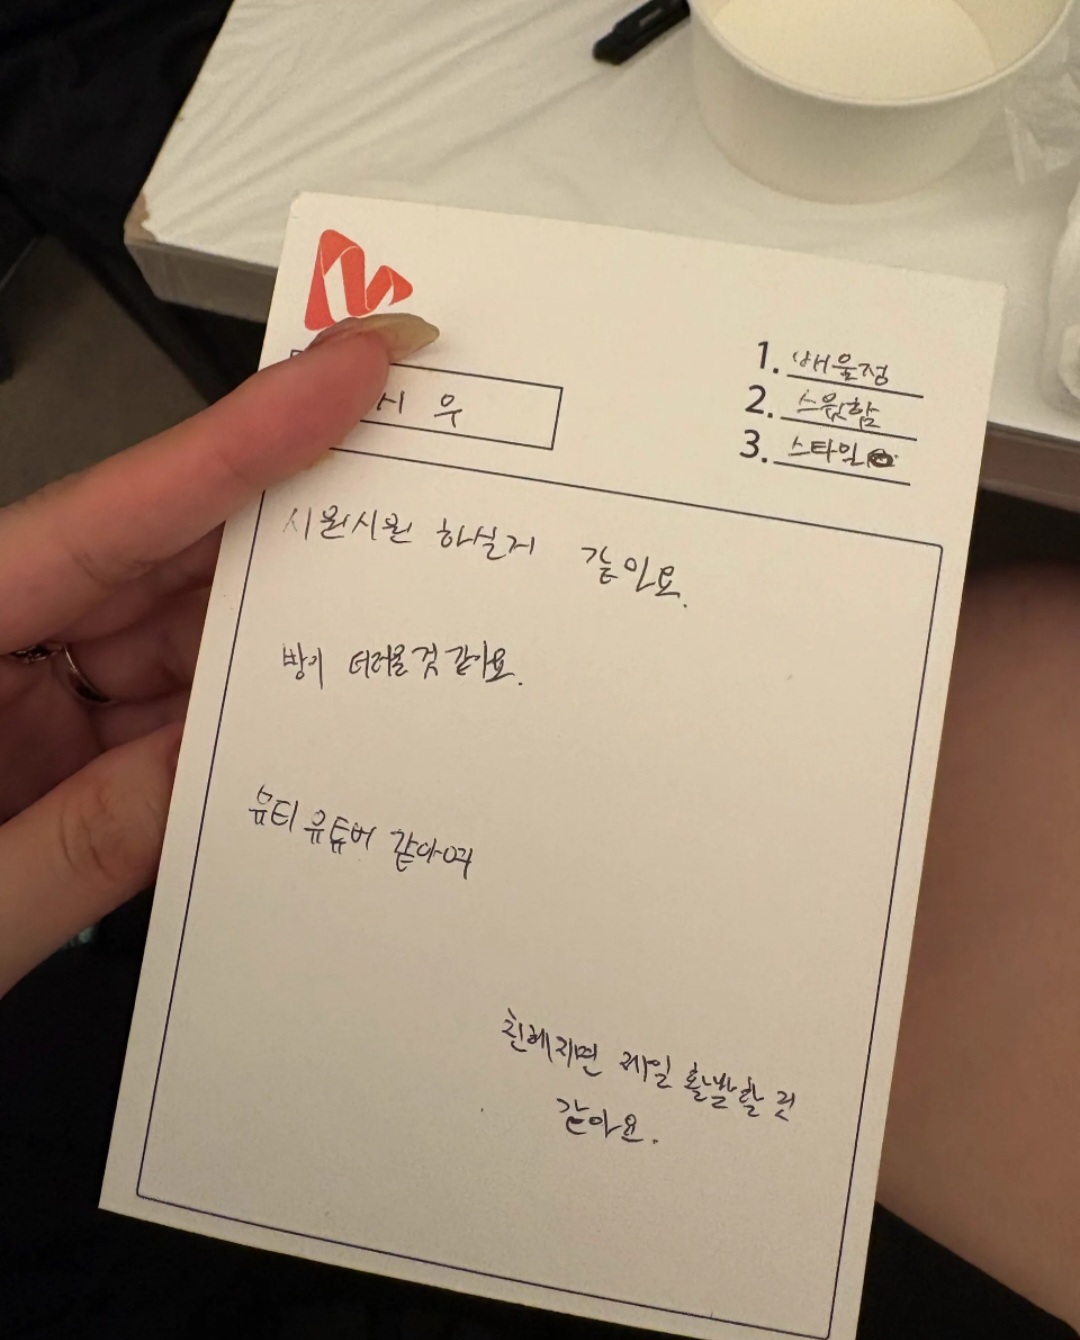 시우
1. 배울점
2. 스윗함
3. 스타일
시원시원 하실거 같아요.
방이 더러울것 같아요.
뷰티 유튜버 같아여
친해지면 제일 활발할 것
같아요.